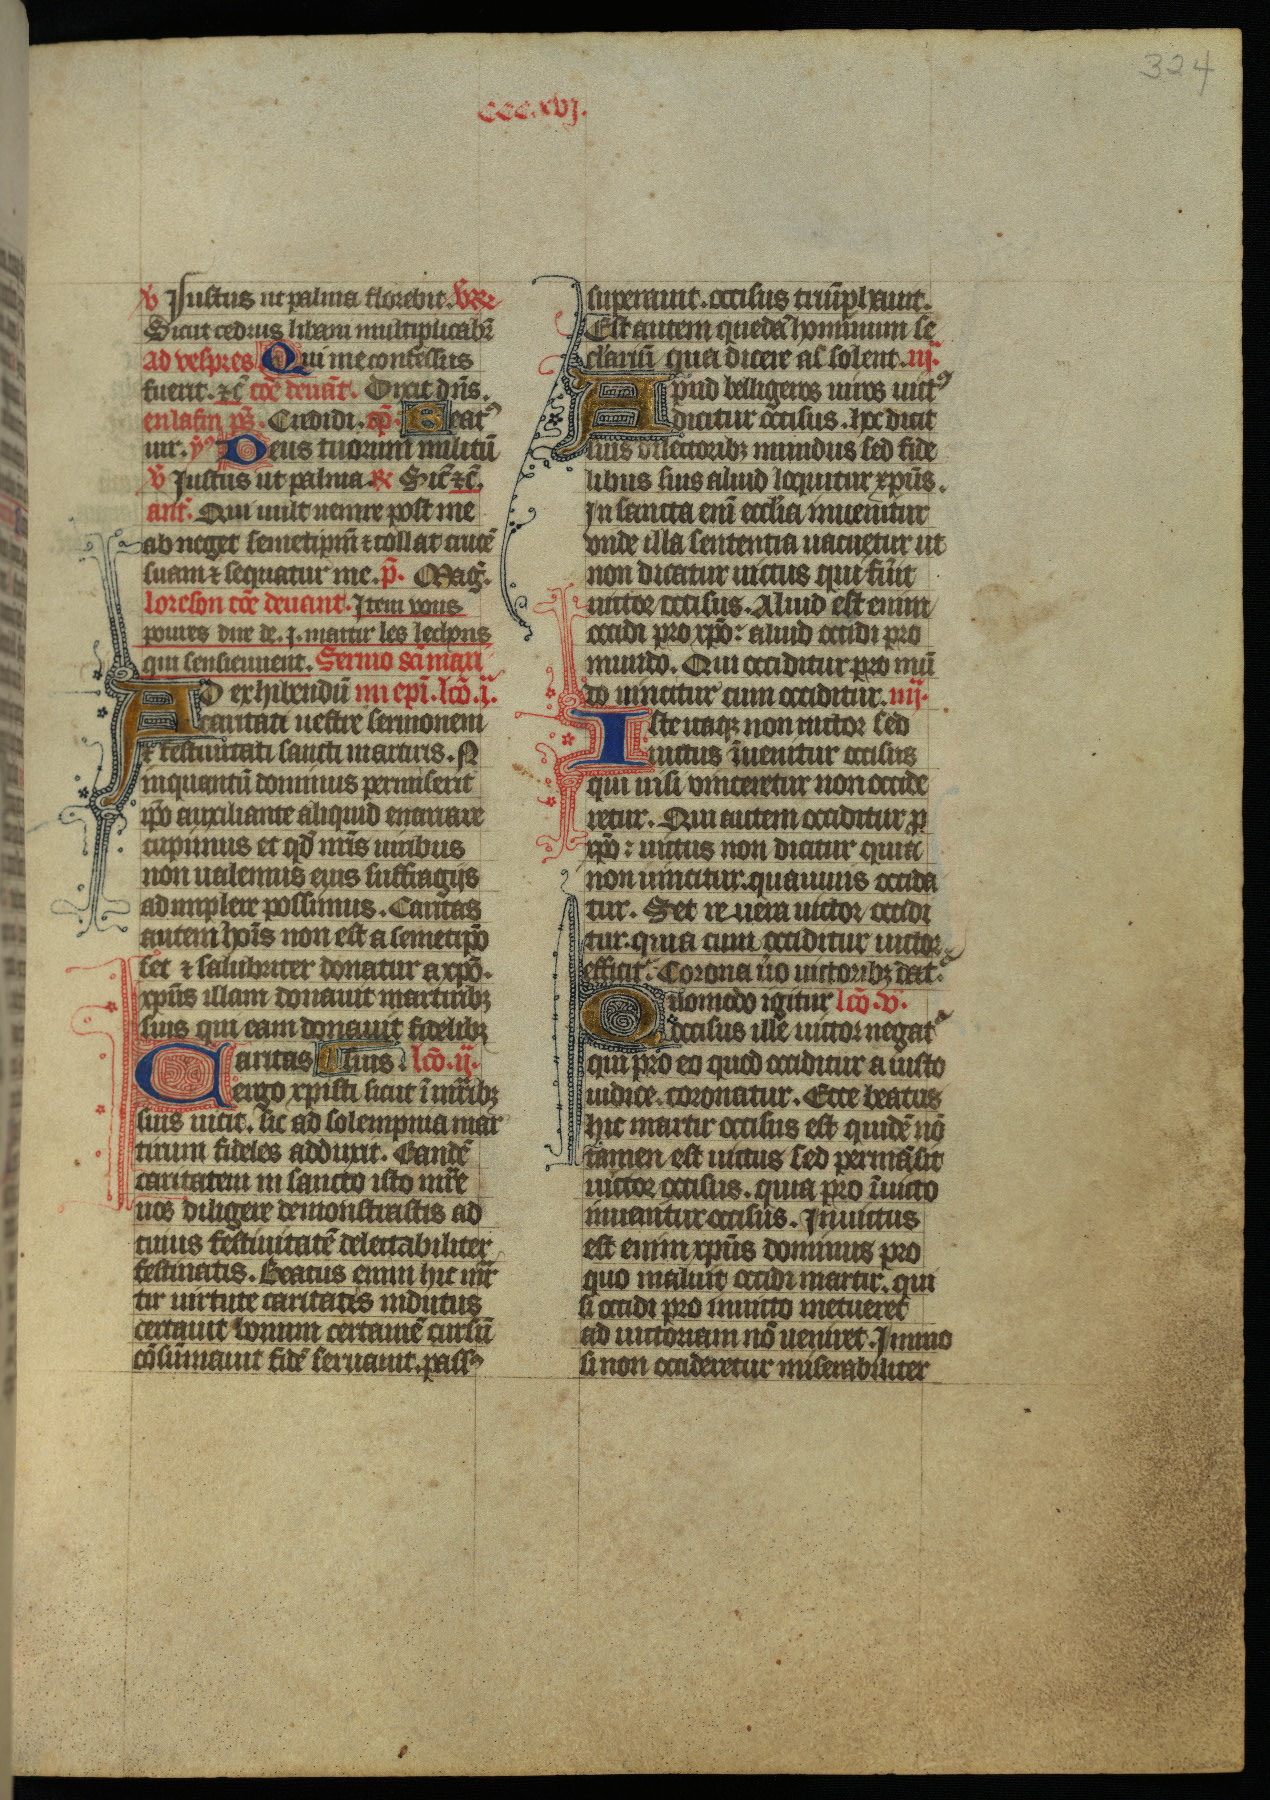 324
ccc.xvj.
v̄ Justus ut palma florebit. v̄ꝶ
Sicut cedrus libani multiplicab̄r
ad vespres Qui me confessus
fuerit. ⁊c̄ cōe deuāt. Dixit dn̄s.
en lafin ps̄. Credidi. cp̄. Beatꝰ
uir. yꝰ Deus tuorum militū
v̄ Justus ut palma. ꝶ Sic̄ ⁊c̄.
ant̄. Qui uult uenire post me
ab neget semetip̄m ⁊ tollat crucē
suam ⁊ sequatur me. p̄. Maḡ.
loreson cōe deuant. Item vous
poures dire de .j. martir les lecōns
qui sensieuuent. Sermo sc̄i maxi
AD exhibendū mi ep̄i. lcō. j.
caritati uestre sermonem
⁊ festiuitati sancti martiris. N
inquantū dominus permiserit
ip̄o auxiliante aliquid enarrare
cupimus et qd̄ nr̄is uiribus
non ualemus eius suffragijs
adimplere possimus. Caritas
autem hoīs non est a semetip̄o
set ⁊ salubriter donatur a xp̄o.
xp̄us illam donauit martiribꝫ
suis qui eam donauit fidelibꝫ
Caritas suis. lcō. ij.
ergo xpisti sicut ī mr̄ibꝫ
suis uicit. sic ad solempnia mar
tirum fideles adduxit. Eandē
caritatem in sancto isto mr̄e
uos diligere demonstrastis ad
cuius festiuitatē delectabiliter
festinatis. Beatus enim hic mr̄
tir uirtute caritatis indutus
certauit bonum certamē cursū
cōsūmauit fidē seruauit. passꝰ
superauit. occisus triūphauit.
Est autem quedā hominum se
clariū qua dicere al̄ solent. iij.
Apud belligeros uiros uictꝰ
dicitur ōccisus. hec dicit
suis dilectoribꝫ mundus sed fide
libus suis aliud loquitur xp̄us.
In sancta enī eccl̄ia inuenitur
vnde illa sententia uacuetur ut
non dicatur uictus qui fūit
uictor occisus. Aliud est enim
occidi pro xp̄o: aliud occidi pro
mundo. Qui occiditur pro mū
do uincitur cum occiditur. iiij.
Iste itaqꝫ non uictor sed
uictus īuenitur occisus
qui nisi vinceretur non occide
retur. Qui autem occiditur ꝓ
xp̄o: uictus non dicitur quia
non uincitur. quamuis occida
tur. Set re uera uictor occidi
tur. quia cum occiditur uictor
efficit᷑. Corona ūo uictoribꝫ dat᷑.
Quomodo igitur lcō. v.
occisus ille uictor negat᷑
qui pro eo quod occiditur a iusto
iudice. coronatur. Ecce beatus
hic martir occisus est quidē nō
tamen est uictus sed permāsit
uictor occisus. quia pro īuicto
inuantur occisus. Inuictus
est enim xp̄us dominus pro
quo maluit occidi martir. qui
si occidi pro inuicto metueret
ad uictoriam nō ueniret. Immo
si non occideretur miserabiliter